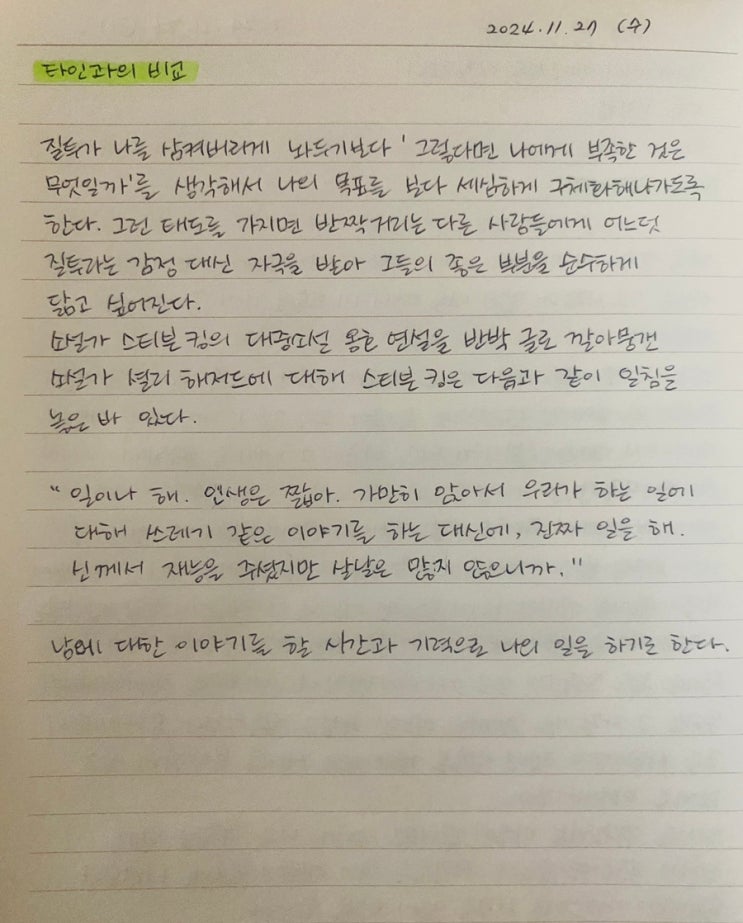 2024.11.27 (수)
타인과의 비교
질투가 나를 삼켜버리게 놔두기보다 '그렇다면 나에게 부족한 것은
무엇일까'를 생각해서 나의 목표를 보다 세심하게 구체화해나가도록
한다. 그런 태도를 가지면 반짝거리는 다른 사람들에게 어느덧
질투라는 감정 대신 자극을 받아 그들의 좋은 부분을 순수하게
닮고 싶어진다.
소설가 스티븐 킹의 대중소설 옹호 연설을 반박 글로 깔아뭉갠
소설가 셜리 해저드에 대해 스티븐 킹은 다음과 같이 일침을
놓은 바 있다.
"일이나 해. 인생은 짧아. 가만히 앉아서 우리가 하는 일에
대해 쓰레기 같은 이야기를 하는 대신에, 진짜 일을 해.
신께서 재능을 주셨지만 살날은 많지 않으니까."
남에 대한 이야기를 할 시간과 기력으로 나의 일을 하기로 한다.